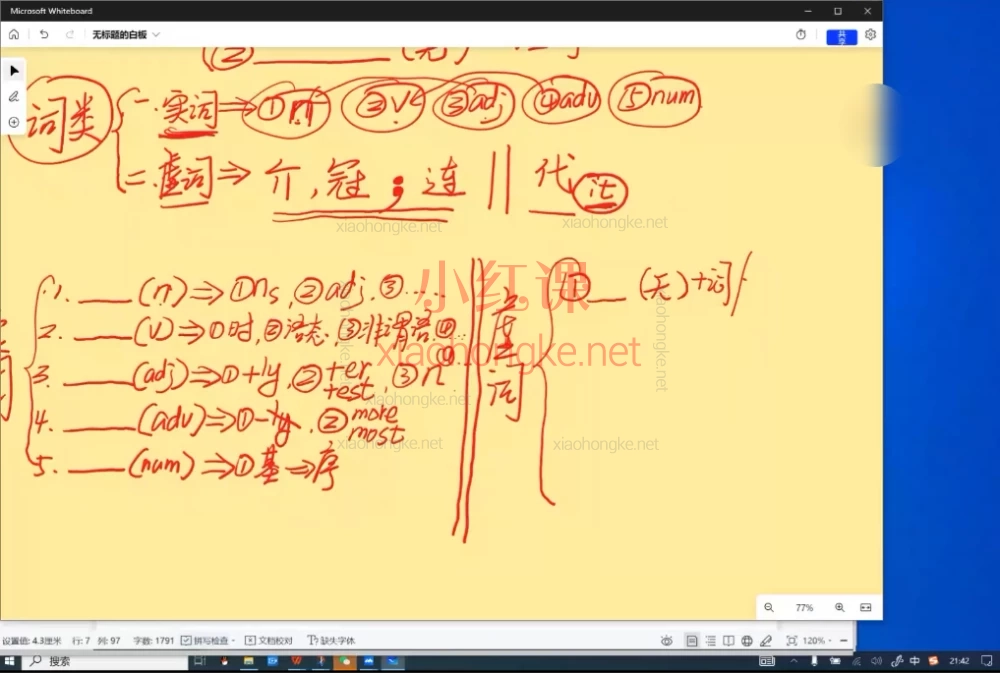 Microsoft Whiteboard
无标题的白板
共享
② ______ (无)
词类
一.实词⇒①n ②v ③adj ④adv ⑤num
二.虚词⇒介,冠;连 || 代 it
xiaohongke.net xiaohongke.net
1. ___ (n)⇒①ns,②adj,③……
2. ___ (v)⇒①时,②语态,③非谓语④…
3. ___ (adj)⇒①+ly,②+er +est,③n
4. ___ (adv)⇒①-ly,②more most
5. ___ (num)⇒①基→序
虚词
① __ (无)+词
小红课
xiaohongke.net
xiaohongke.net
xiaohongke.net
xiaohongke.net xiaohongke.net
77%
设置值: 4.3厘米 行: 7 列: 97 字数: 1791 拼写检查 文档校对 缺失字体 120%
搜索 中 21:42